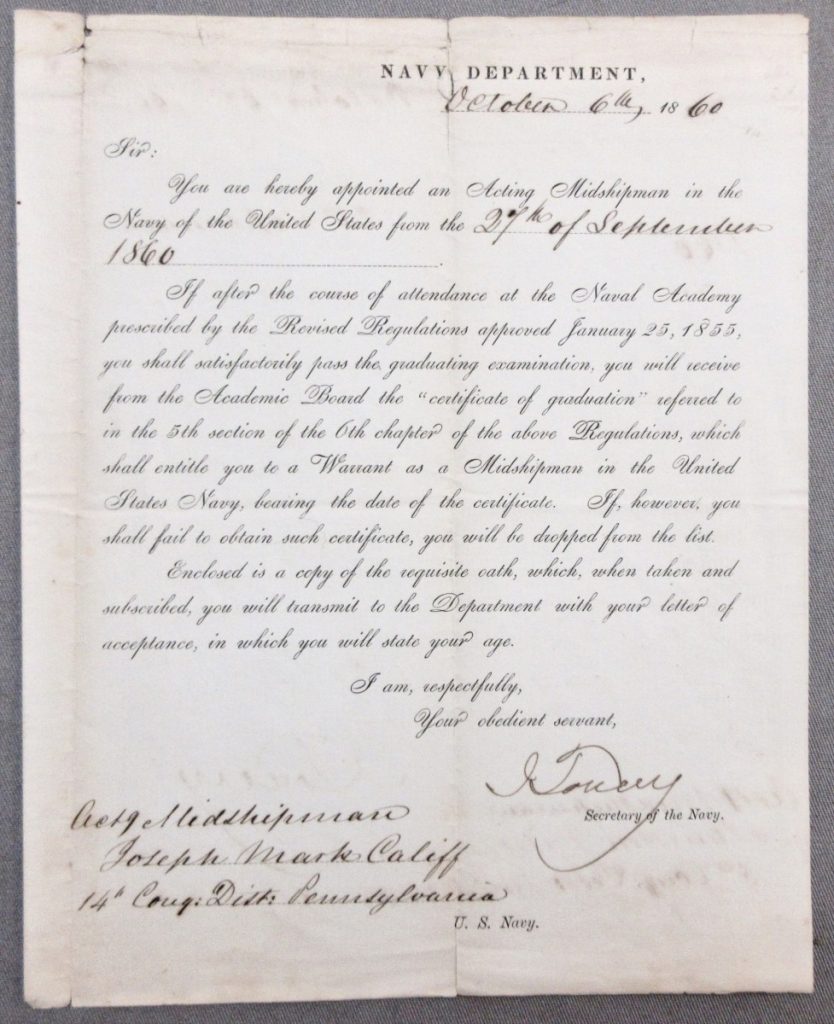 NAVY DEPARTMENT,
October 6th, 1860
Sir:
You are hereby appointed an Acting Midshipman in the
Navy of the United States from the 27th of September
1860
If after the course of attendance at the Naval Academy
prescribed by the Revised Regulations approved January 25, 1855,
you shall satisfactorily pass the graduating examination, you will receive
from the Academic Board the "certificate of graduation" referred to
in the 5th section of the 6th chapter of the above Regulations, which
shall entitle you to a Warrant as a Midshipman in the United
States Navy, bearing the date of the certificate. If, however, you
shall fail to obtain such certificate, you will be dropped from the list.
Enclosed is a copy of the requisite oath, which, when taken and
subscribed, you will transmit to the Department with your letter of
acceptance, in which you will state your age.
I am, respectfully,
Your obedient servant,
I Toucey
Secretary of the Navy.
Actg Midshipman
Joseph Mark Califf
14th Cong: Dist: Pennsylvania
U. S. Navy.